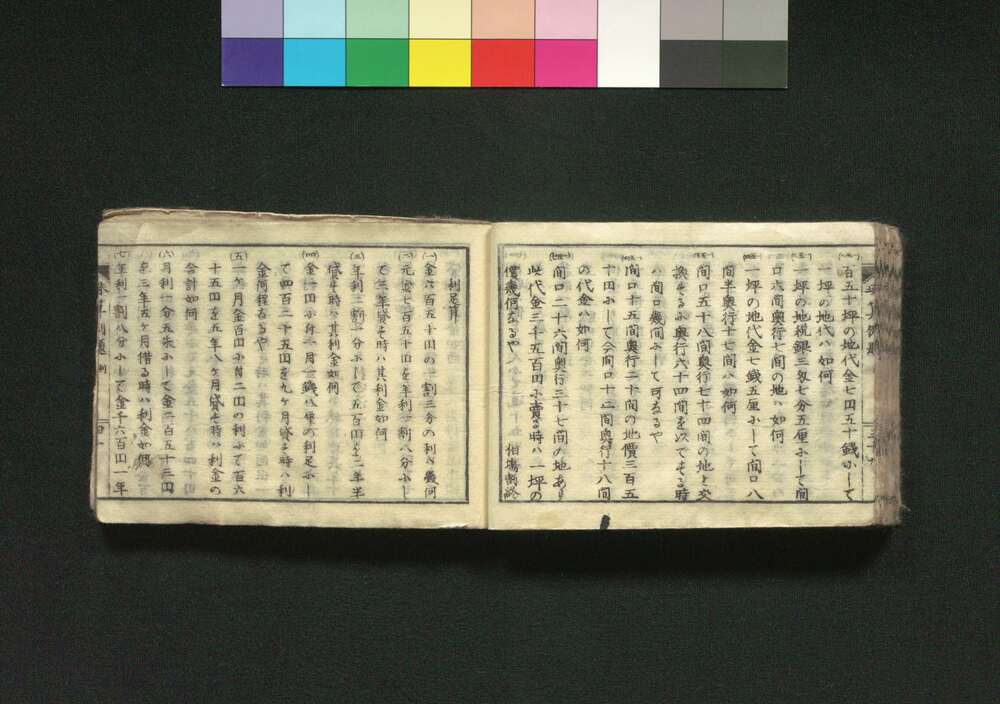 百五十坪の地代金七円五十銭ニして
一坪の地代ハ如何
一坪の地税銀三匁七分五厘ニして間
口六間奥行七間の地ハ如何
一坪の地代金七銭五厘ニして間口八
間半奥行十七間ハ如何
間口五十八間奥行七十四間の地と交
換するニ奥行六十四間を以てする時
ハ間口幾間ニして可なるや
間口十五間奥行二十間の地價三百五
十円ニして今間口十二間奥行十八間
の代金ハ如何
間口二十六間奥行二十七間の地あり
此代金三千五百円ニ賣る時ハ一坪の
價幾何なるや 相場割終
利足算
(一)金六百五十円の一割三分の利ハ幾何
(二)元金七百五十円を年利一割八分ニし
て三年貸す時ハ其利金如何
(三)年利二割一分ニして五百円を二年半
貸す時ハ其利金如何
(四)金一円ニ付一ヶ月一銭八厘の利足ニし
て四百二十五円を九ヶ月貸す時ハ利
金何程なるや
(五)一ヶ月金百円ニ付二円の利ニて百六
十五円を五年八ヶ月貸す時ハ利金の
合計如何
(六)月利一分五朱ニして金二百五十三円
を三年五ヶ月借る時ハ利金如何
(七)年利一割八分ニして金千六百円一年